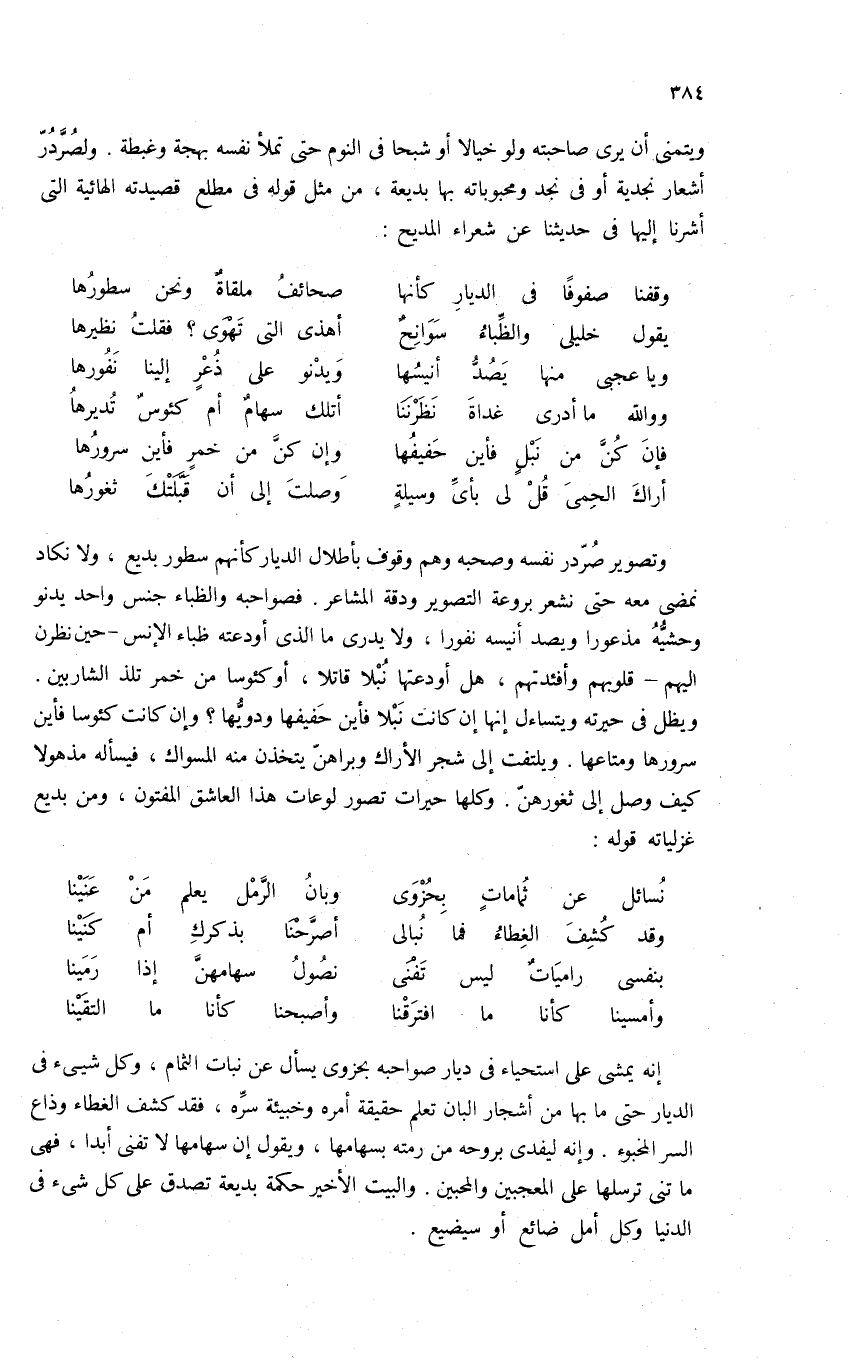 ٣٨٤
ويتمنى أن يرى صاحبته ولو خيالا أو شبحا فى النوم حتى تملأ نفسه بهجة وغبطة . ولصُرَّدُرّ
أشعار نجدية أو فى نجد ومحبوباته بها بديعة ، من مثل قوله فى مطلع قصيدته الهائية التى
أشرنا إليها فى حديثنا عن شعراء المديح :
وقفنا صفوفًا فى الديارِ كأنها صحائفُ ملقاةٌ ونحن سطورُها
يقول خليلى والظِّباءُ سَوَانِحٌ أهذى التى تَهْوَى ؟ فقلتُ نظيرها
ويا عجبى منها يَصُدُّ أنيسُها وَيدْنو على ذُعْرٍ إلينا نَفُورها
ووالله ما أدرى غداةَ نَظَرْنَنَا أتلك سهامٌ أم كئوسٌ تُديرهاُ
فإنَ كُنَّ من نَبْلٍ فأين حَفيفُها وإن كنَّ من خمرٍ فأين سرورُها
أراكَ الحِمىَ قُلْ لى بأىِّ وسيلةٍ وَصلتَ إلى أن قَبَّلَتْكَ ثغورُها
وتصوير صُرّدر نفسه وصحبه وهم وقوف بأطلال الديار كأنهم سطور بديع ، ولا نكاد
نمضى معه حتى نشعر بروعة التصوير ودقة المشاعر . فصواحبه والظباء جنس واحد يدنو
وحشيُّهُ مذعورا ويصد أنيسه نفورا ، ولا يدرى ما الذى أودعته ظباء الإنس – حين نظرن
اليهم – قلوبهم وأفئدتهم ، هل أودعتها نُبْلا قاتلا ، أو كئوسا من خمر تلذ الشاربين .
ويظل فى حيرته ويتساءل إنها إن كانت نَبْلا فأين حَفيفها ودويُّها ؟ وإن كانت كئوسا فأين
سرورها ومتاعها . ويلتفت إلى شجر الأراك ويراهنّ يتخذن منه المسواك ، فيسأله مذهولا
كيف وصل إلى ثغورهنّ . وكلها حيرات تصور لوعات هذا العاشق المفتون ، ومن بديع
غزلياته قوله :
نُسائل عن ثُماماتٍ بِحُزْوَى وبانُ الرَّمْل يعلم مَنْ عَنَيْنا
وقد كُشِفَ الغِطاءُ فما نُبالى أصرَّحْنَا بذكركِ أم كَنَيْنا
بنفسى راميَاتٌ ليس تَفْنَى نصُولُ سهامهنَّ إذا رَمَينا
وأمسينا كأنا ما افترَقْنا وأصبحنا كأنا ما التقيْنا
إنه يمشى على استحياء فى ديار صواحبه بحزوى يسأل عن نبات الثمام ، وكل شيىء فى
الديار حتى ما بها من أشجار البان تعلم حقيقة أمره وخبيئة سرِّه ، فقد كشف الغطاء وذاع
السر المخبوء . وإنه ليفدى بروحه من رمته بسهامها ، ويقول إن سهامها لا تفنى أبدا ، فهى
ما تنى ترسلها على المعجبين والمحبين . والبيت الأخير حكمة بديعة تصدق على كل شىء فى
الدنيا وكل أمل ضائع أو سيضيع .